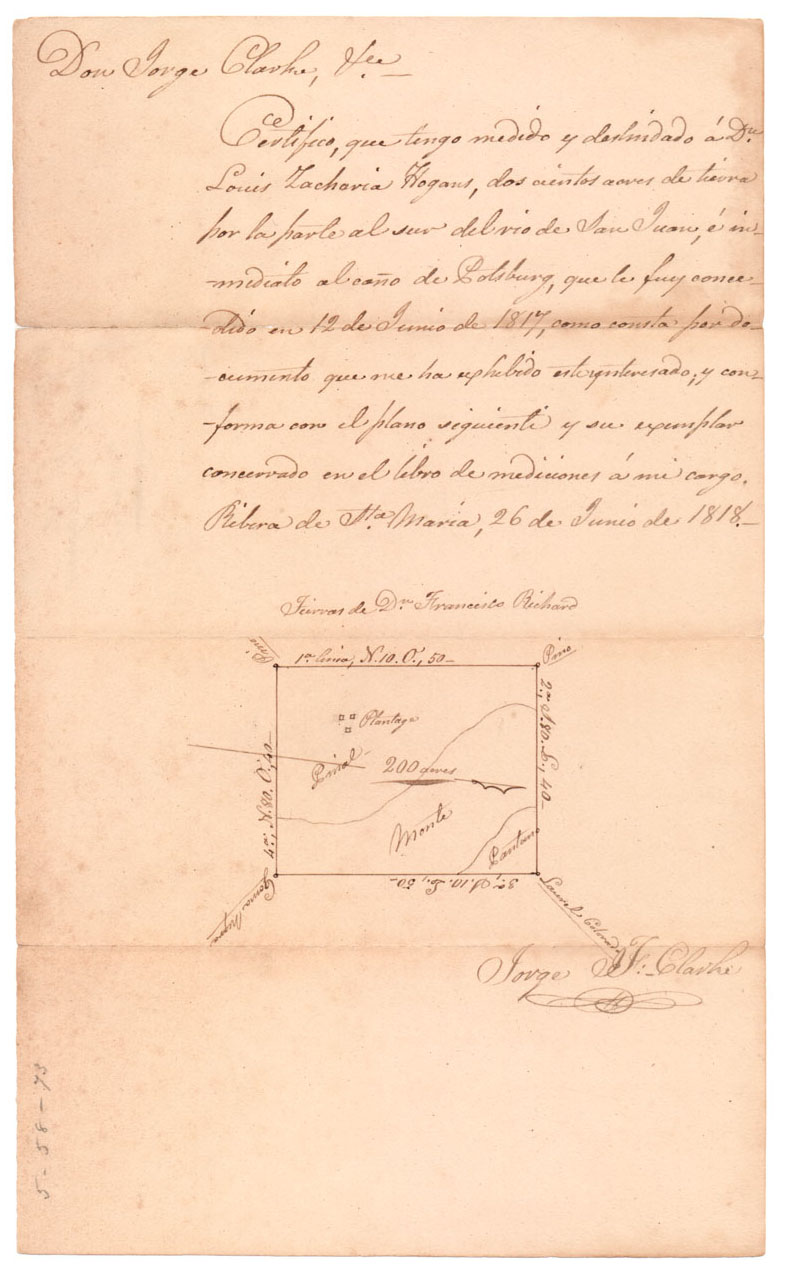 Don Jorge Clarke, &ce
Certifico, que tengo medido y deslindado á Dn
Louis Zacharia Hogans, dos cientos acres de tierra
por la parte al sur del rio de San Juan, é in-
-mediato al caño de Potsburg, que le fuy conce-
-dido en 12 de Junio de 1817, como consta por do-
-cumento que me ha exhibido este ynteresado; y con-
-forma con el plano siguiente y su exemplar
concervado en el libro de mediciones á mi cargo.
Ribera de Sta Maria, 26 de Junio de 1818.-
Tierras de Dn Francisco Richard
Pino
1ra linia, N. 10. O., 50-
Pino
Plantage
2ra, S. 80. E., 40-
Pinal
200 acres
4ra, N. 80. O., 40-
Monte
Pantano
3ra, S. 10. E., 50-
Goma
Laurel Colorado
Jorge J. F. Clarke
5-58-73